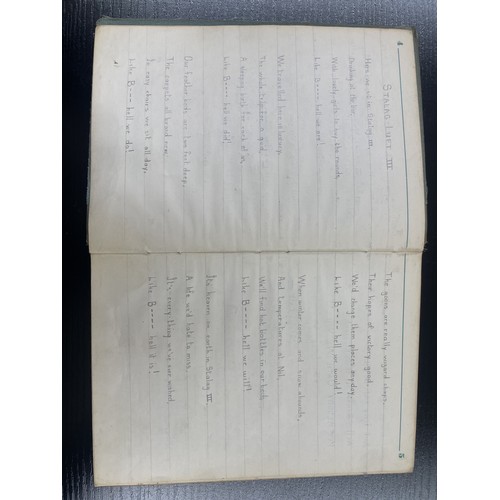 4
STALAG LUFT III
Here we are in Stalag III,
Drinking at the bar,
With lovely girls to buy the rounds,
Like B---- hell we are!
We travelled here in luxury,
The whole trip for a quid,
A sleeping berth for each of us,
Like B---- hell we did!
Our feather beds are two feet deep,
The carpets
In easy chairs we sit all day,
Like B---- hell we do!
5
The goons are really wizard chaps,
Their hopes of victory good,
We'd change them places any day,
Like B---- hell we would!
When winter comes and snow abounds,
And temperatures at Nil,
We'll find hot bottles in our beds
Like B---- hell we will!
It's heaven on earth in Stalag III,
A life we'd hate to miss,
It's everything we've ever wished,
Like B---- hell it is!